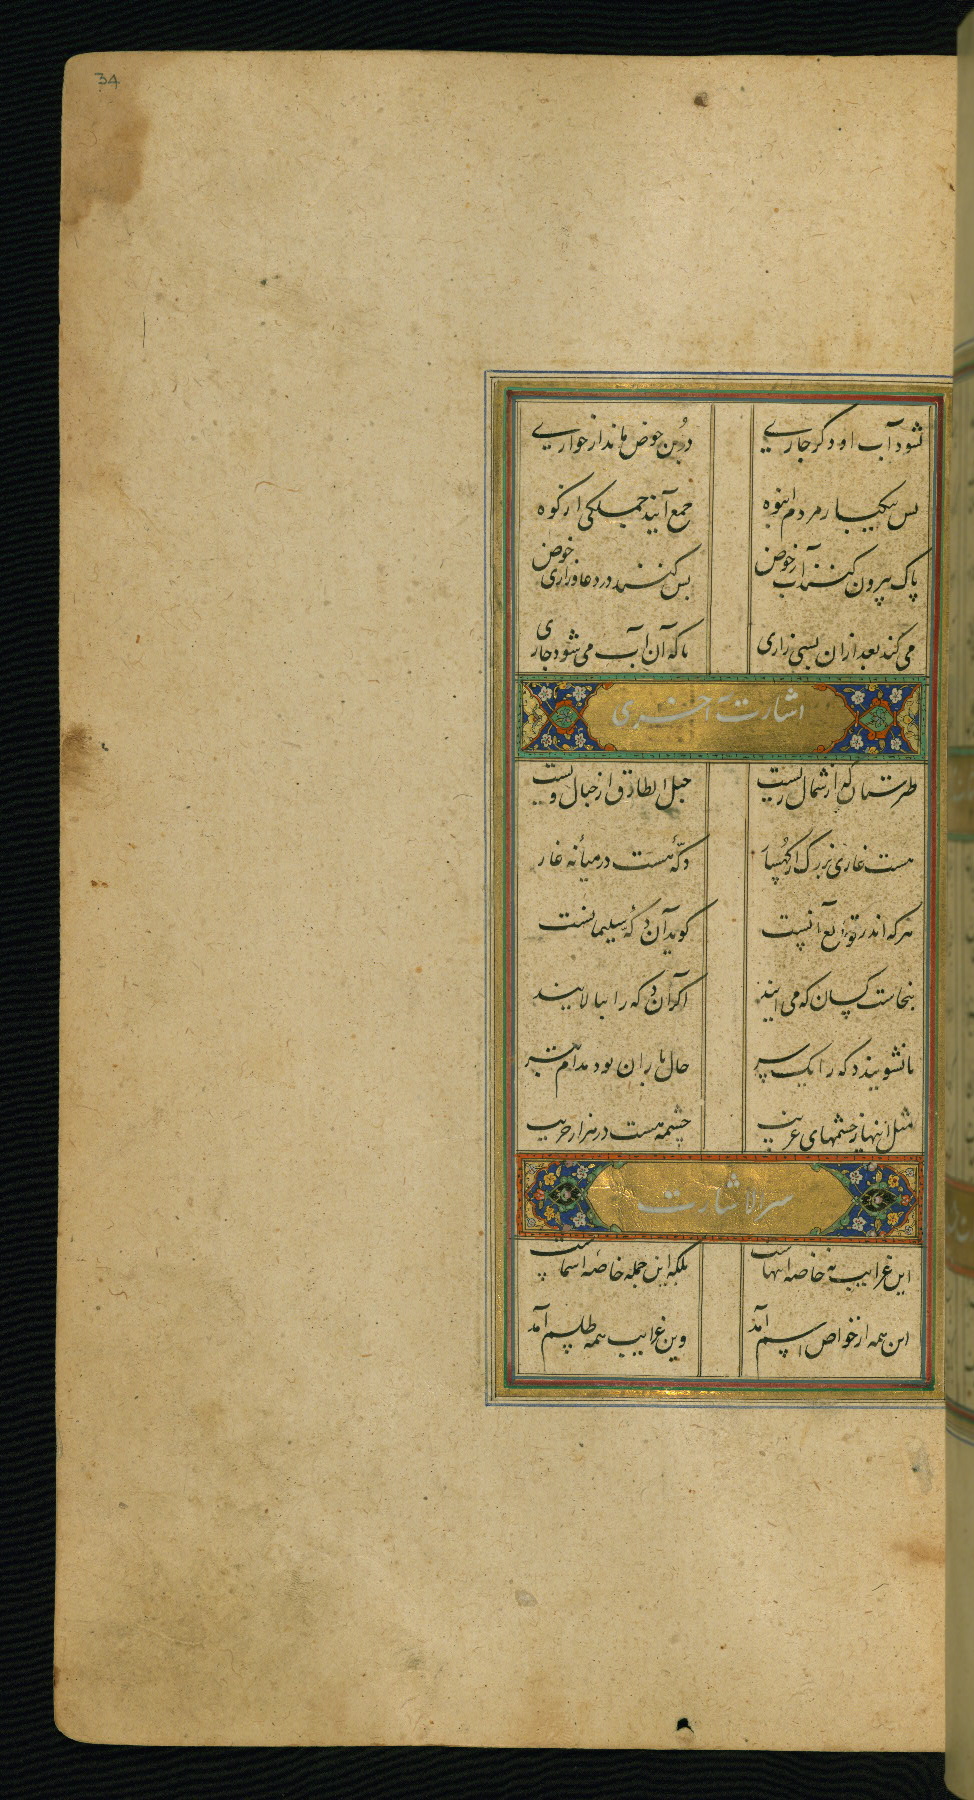 34
نشود آب او دگر جاری در بن حوض ماند از خواری
پس بیکبار مردم انبوه جمع آیند جملکی از کوه
پاک بیرون کنند آب از حوض پس کنند در دعا و زاری خوض
می کند بعد ازان بسی زاری تا که آن آب می شود جاری
اشارت آخری
طبرستان که از شمال ریست جبل الطارق از جبال ویست
هست غاری بزرگ از کهسار دکهٔ هست در میانه غار
هر که اندر توابع آنست کوید آن دکهٔ سلیمانست
بنجاست کسان که می آیند اکر آن دکه را بیالایند
تا نشویند دکه را یکسر حال باران بود مدام بتر
مثل اینها ز چشمهای غریب چشمه هست در هزار جریب
سر الاشارت
این غرایب نه خاصه اینهاست بلکه این جمله خاصه اسماست
این همه از خواص اسم آمد وین غرایب همه طلسم آمد